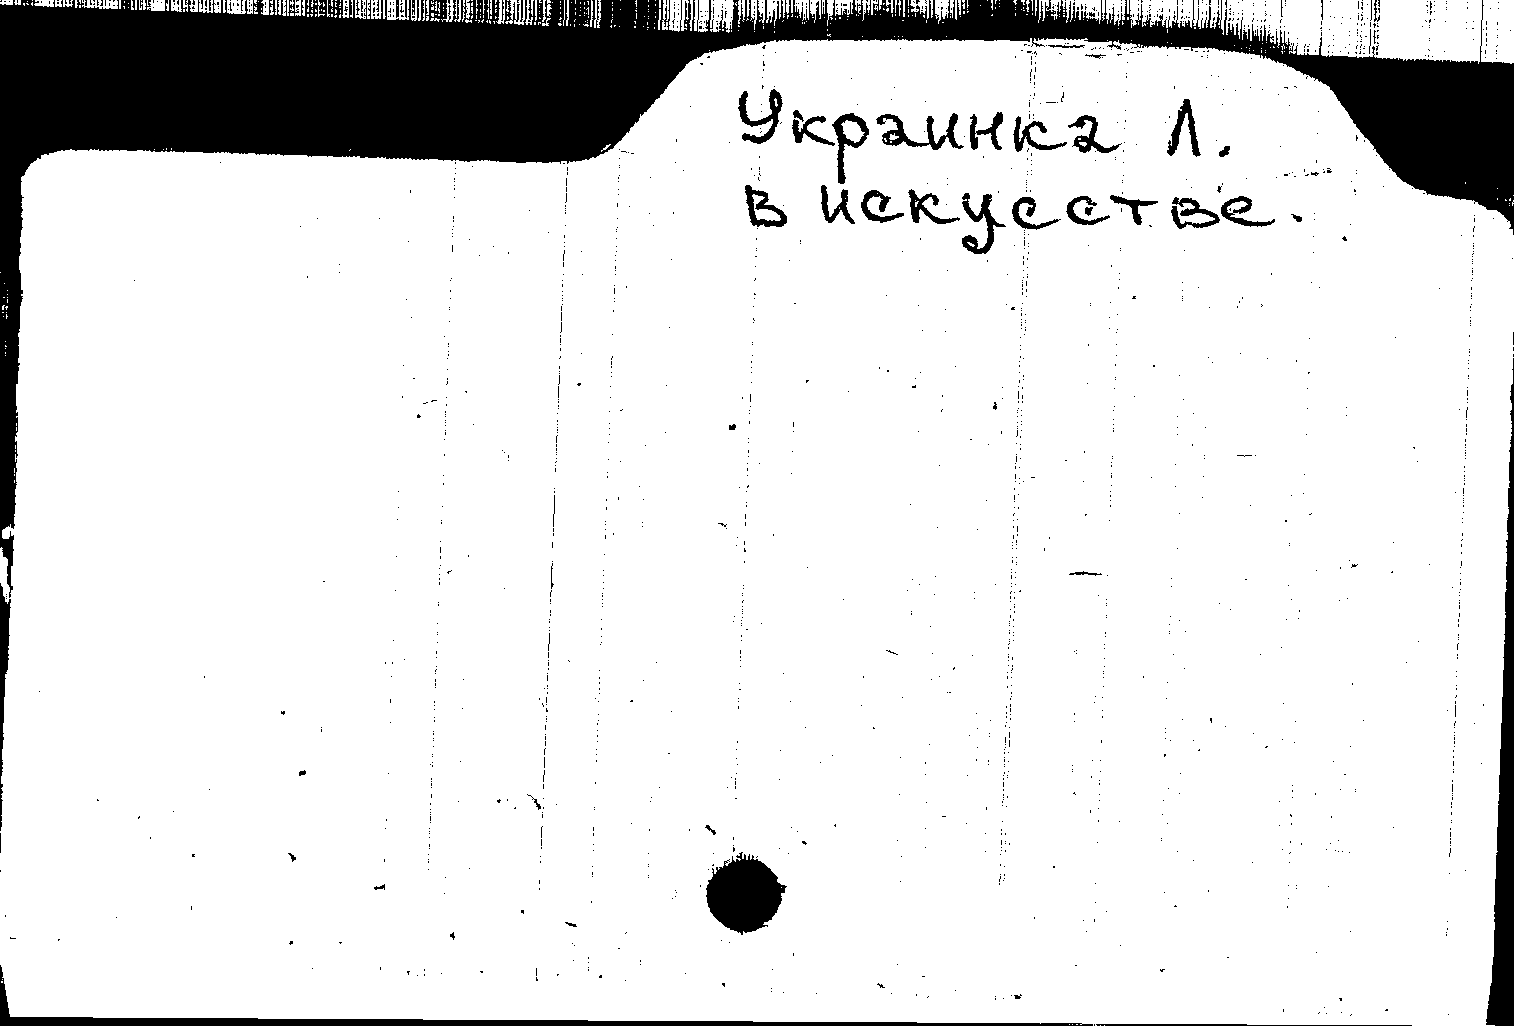 Украинка Л.
в искусстве.